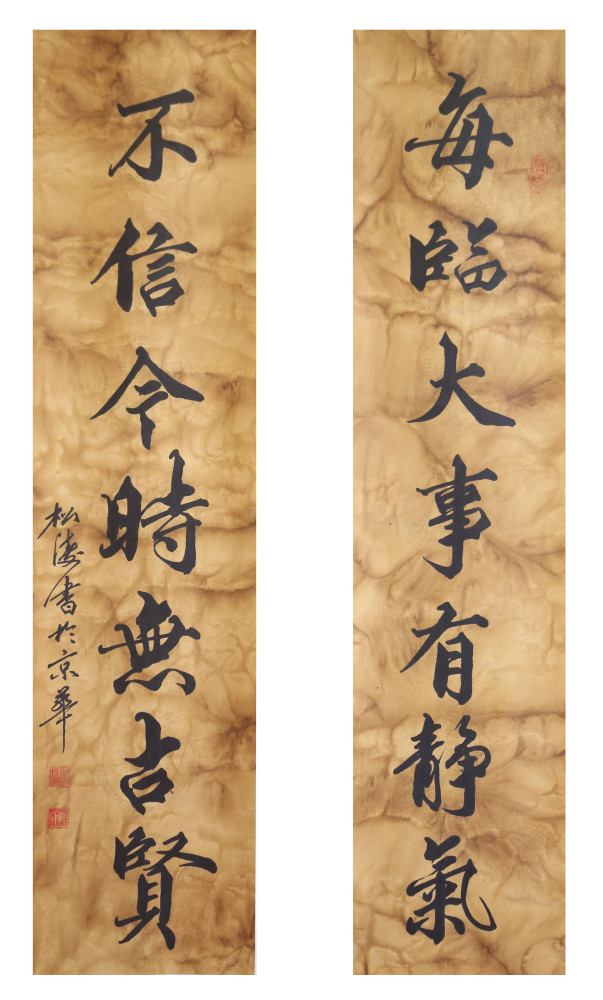 每臨大事有静氣
不信今時無古賢
松濤書於京華